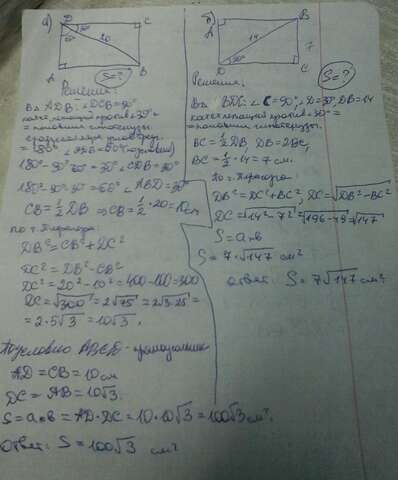 а) D C
60° 30°
20
60° 30°
A B
S=?
Решение:
В △ ADB: ∠DCB=90°
катет, лежащий против ∠30°=
= половине гипотенузы.
180°-90°-60°=30° ∠CDB=30°
180°-90°-30°=60° ∠ABD=30°
CB=½DB ⇒ CB=½·20=10см
по т. Пифагора:
DB²=CB²+DC²
DC²=DB²-CB²
DC²=20²-10²=400-100=300
DC=√300=2√75=2√3·25=
=2·5√3=10√3.
По условию ABCD - прямоугольник
AD=CB=10см
DC=AB=10√3.
S=a·b=AD·DC=10·10√3=100√3 см².
Ответ: S=100√3 см²
б) B
A
14
7
30°
D C
S=?
Решение:
В △ BDC: ∠C=90°, ∠D=30°, DB=14
катет лежащий против ∠30°=
=половине гипотенузы.
BC=½DB, DB=2BC,
BC=½·14=7 см.
По т. Пифагора:
DB²=DC²+BC², DC=√DB²-BC²
DC=√14²-7²=√196-49=√147
S=a·b
S=7·√147 см²
Ответ: S=7√147 см²